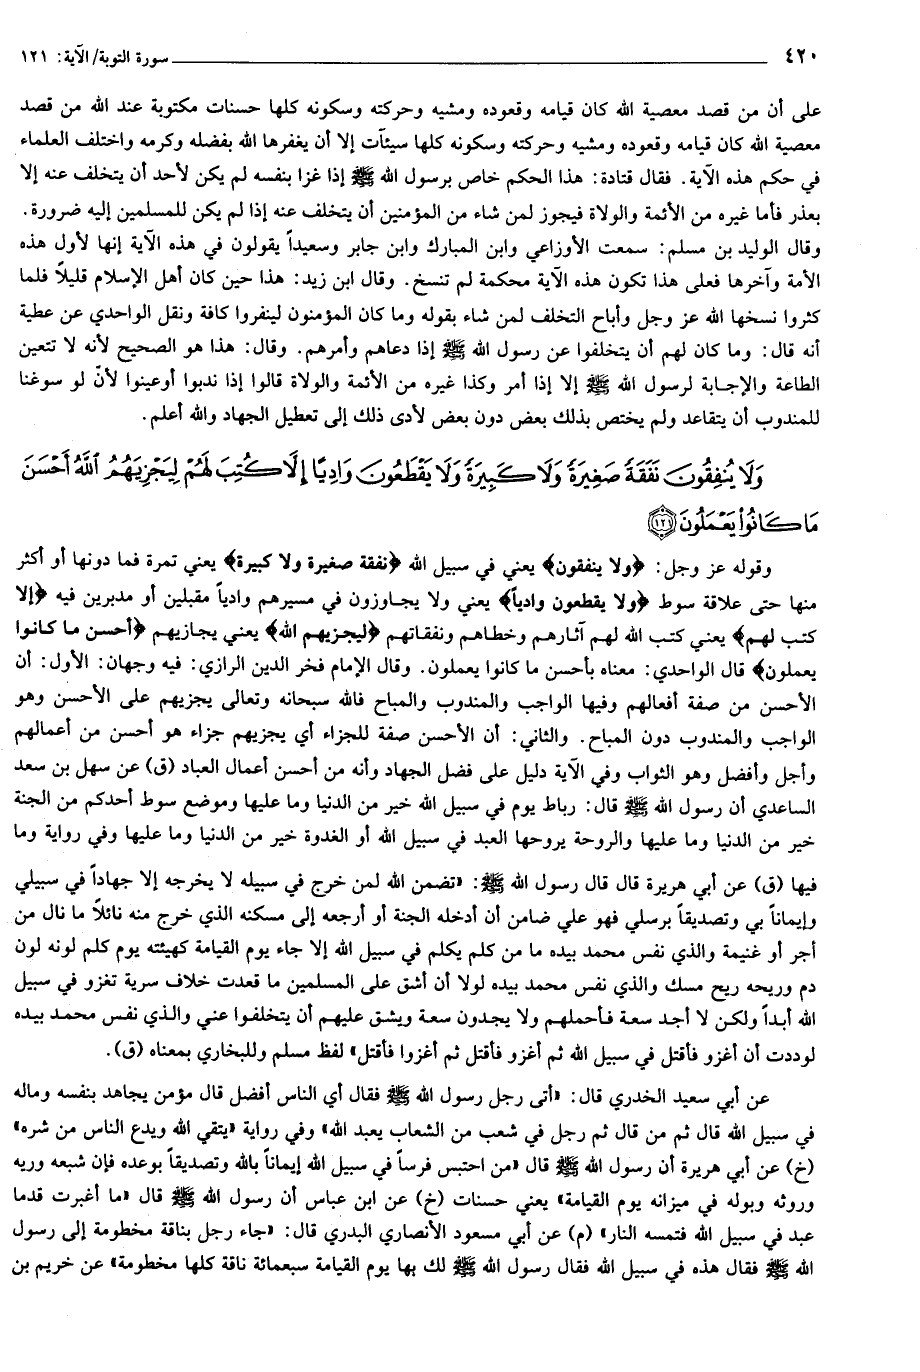 ٤٢٠ سورة التوبة/ الآية: ١٢١
على أن من قصد معصية الله كان قيامه وقعوده ومشيه وحركته وسكونه كلها حسنات مكتوبة عند الله من قصد
معصية الله كان قيامه وقعوده ومشيه وحركته وسكونه كلها سيئآت إلا أن يغفرها الله بفضله وكرمه واختلف العلماء
في حكم هذه الآية. فقال قتادة: هذا الحكم خاص برسول الله ﷺ إذا غزا بنفسه لم يكن لأحد أن يتخلف عنه إلا
بعذر فأما غيره من الأئمة والولاة فيجوز لمن شاء من المؤمنين أن يتخلف عنه إذا لم يكن للمسلمين إليه ضرورة.
وقال الوليد بن مسلم: سمعت الأوزاعي وابن المبارك وابن جابر وسعيداً يقولون في هذه الآية إنها لأول هذه
الأمة وآخرها فعلى هذا تكون هذه الآية محكمة لم تنسخ. وقال ابن زيد: هذا حين كان أهل الإسلام قليلاً فلما
كثروا نسخها الله عز وجل وأباح التخلف لمن شاء بقوله وما كان المؤمنون لينفروا كافة ونقل الواحدي عن عطية
أنه قال: وما كان لهم أن يتخلفوا عن رسول الله ﷺ إذا دعاهم وأمرهم. وقال: هذا هو الصحيح لأنه لا تتعين
الطاعة والإجابة لرسول الله ﷺ إلا إذا أمر وكذا غيره من الأئمة والولاة قالوا إذا ندبوا أوعينوا لأنّ لو سوغنا
للمندوب أن يتقاعد ولم يختص بذلك بعض دون بعض لأدى ذلك إلى تعطيل الجهاد والله أعلم.
وَلَا يُنفِقُونَ نَفَقَةً صَغِيرَةً وَلَا كَبِيرَةً وَلَا يَقْطَعُونَ وَادِيًا إِلَّا كُتِبَ لَهُمْ لِيَجْزِيَهُمُ ٱللَّهُ أَحْسَنَ
مَا كَانُوا۟ يَعْمَلُونَ ﴿١٢١﴾
وقوله عز وجل: ﴿ولا ينفقون﴾ يعني في سبيل الله ﴿نفقة صغيرة ولا كبيرة﴾ يعني تمرة فما دونها أو أكثر
منها حتى علاقة سوط ﴿ولا يقطعون وادياً﴾ يعني ولا يجاوزون في مسيرهم وادياً مقبلين أو مدبرين فيه ﴿إلا
كتب لهم﴾ يعني كتب الله لهم آثارهم وخطاهم ونفقاتهم ﴿ليجزيهم الله﴾ يعني يجازيهم ﴿أحسن ما كانوا
يعملون﴾ قال الواحدي: معناه بأحسن ما كانوا يعملون. وقال الإمام فخر الدين الرازي: فيه وجهان: الأول: أن
الأحسن من صفة أفعالهم وفيها الواجب والمندوب والمباح فالله سبحانه وتعالى يجزيهم على الأحسن وهو
الواجب والمندوب دون المباح. والثاني: أن الأحسن صفة للجزاء أي يجزيهم جزاء هو أحسن من أعمالهم
وأجل وأفضل وهو الثواب وفي الآية دليل على فضل الجهاد وأنه من أحسن أعمال العباد (ق) عن سهل بن سعد
الساعدي أن رسول الله ﷺ قال: رباط يوم في سبيل الله خير من الدنيا وما عليها وموضع سوط أحدكم من الجنة
خير من الدنيا وما عليها والروحة يروحها العبد في سبيل الله أو الغدوة خير من الدنيا وما عليها وفي رواية وما
فيها (ق) عن أبي هريرة قال قال رسول الله ﷺ: «تضمن الله لمن خرج في سبيله لا يخرجه إلا جهاداً في سبيلي
وإيماناً بي وتصديقاً برسلي فهو علي ضامن أن أدخله الجنة أو أرجعه إلى مسكنه الذي خرج منه نائلاً ما نال من
أجر أو غنيمة والذي نفس محمد بيده ما من كلم يكلم في سبيل الله إلا جاء يوم القيامة كهيئته يوم كلم لونه لون
دم وريحه ريح مسك والذي نفس محمد بيده لولا أن أشق على المسلمين ما قعدت خلاف سرية تغزو في سبيل
الله أبداً ولكن لا أجد سعة فأحملهم ولا يجدون سعة ويشق عليهم أن يتخلفوا عني والذي نفس محمد بيده
لوددت أن أغزو فأقتل في سبيل الله ثم أغزو فأقتل ثم أغزوا فأقتل» لفظ مسلم وللبخاري بمعناه (ق).
عن أبي سعيد الخدري قال: «أتى رجل رسول الله ﷺ فقال أي الناس أفضل قال مؤمن يجاهد بنفسه وماله
في سبيل الله قال ثم من قال ثم رجل في شعب من الشعاب يعبد الله» وفي رواية «يتقي الله ويدع الناس من شره»
(خ) عن أبي هريرة أن رسول الله ﷺ قال «من احتبس فرساً في سبيل الله إيماناً بالله وتصديقاً بوعده فإن شبعه وريه
وروثه وبوله في ميزانه يوم القيامة» يعني حسنات (خ) عن ابن عباس أن رسول الله ﷺ قال «ما أغبرت قدما
عبد في سبيل الله فتمسه النار» (م) عن أبي مسعود الأنصاري البدري قال: «جاء رجل بناقة مخطومة إلى رسول
الله ﷺ فقال هذه في سبيل الله فقال رسول الله ﷺ لك بها يوم القيامة سبعمائة ناقة كلها مخطومة» عن خريم بن